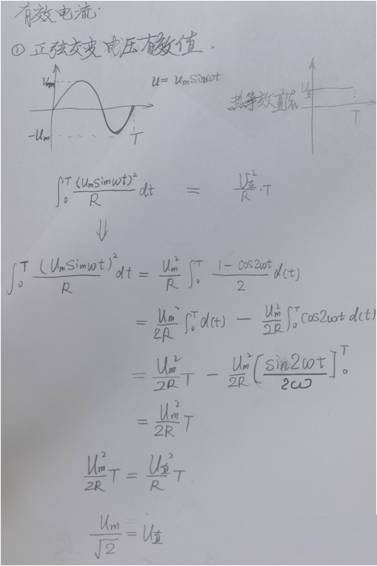 有效电流:
① 正弦交变电压有效值.
Um
-Um
T
u = Um Sinωt
热等效直流
U直
T
∫₀ᵀ (Um Sinωt)²/R dt = U直²/R · T
⇓
∫₀ᵀ (Um Sinωt)²/R dt = Um²/R ∫₀ᵀ (1 - cos2ωt)/2 d(t)
= Um²/2R ∫₀ᵀ d(t) - Um²/2R ∫₀ᵀ cos2ωt d(t)
= Um²/2R T - Um²/2R [sin2ωt/2ω]₀ᵀ
= Um²/2R T
Um²/2R T = U直²/R T
Um/√2 = U直